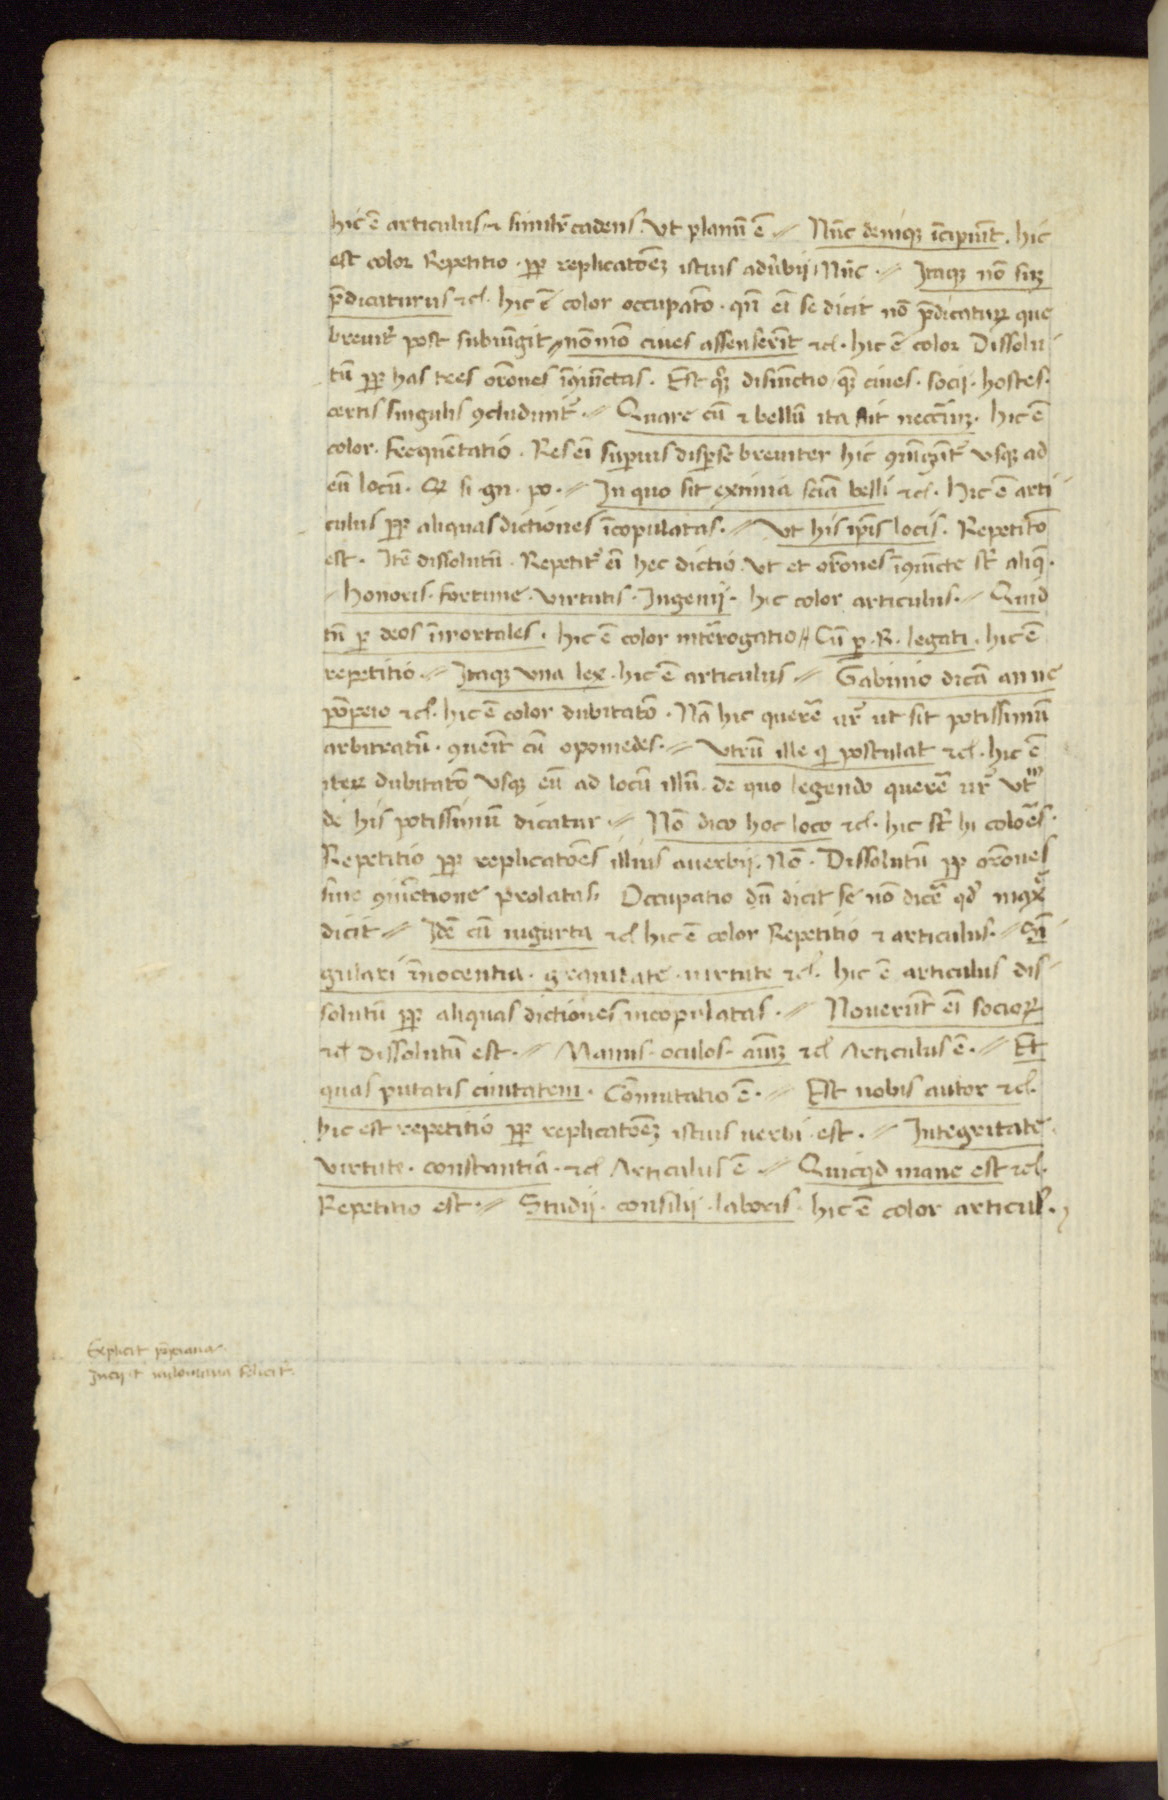 hic ē articulus & simĺr cadens. Vt planū ē // Nūc deniq; īcipiūt. hic
est color Repetitio. ꝓp replicatōēꝫ istius adūbij Nūc. // Itaq; nō suꝫ
p̄dicaturus &c̃. hic ē color occupatō. qn̄ ei̅ se dicit nō p̄dicaturꝫ que
breuit̾ post subiūgit // nō mō ciues assenserīt &c̃. hic ē color Dissolu
tū ꝓp has tres orōnes īꝯiūctas. Est qꝫ disiūctio qꝫ ciues. socij. hostes.
certis singulis ꝯcludunt̾. // Quare cū & bellū ita sit neccīuꝫ. hic ē
color. frequētatio. Res ei̅ superius disperse breuiter hic ꝯiūgūt̾ vsq; ad
eū locū. Q si gn. po. // In quo sit eximia sciā belli &c̃. hic ē arti
culus ꝓp aliquas dictiones īcopulatas. // Vt his ip̄is locis. Repetitō
est. Itē dissolutū. Repetit̾ ei̅ hec dictio Vt et orōnes īꝯiūcte st̾ aliq̄.
Honoris. fortune. virtutis. Ingenij. hic color articulus. // Quid
tn̄ ꝑ deos īmortales. hic ē color īnterogatio // Cū p. R. legati. hic ē
repetitio. // Itaq; vna lex. hic ē articulus // Gabinio dicā anne
pōpeio &c̃. hic ē color dubitatō. Nā hic querē ur̃ ut sit potissimū
arbitratū. ꝯueīt cū opomedes. // Vtrū ille q postulat &c̃. hic ē
iterꝫ dubitatō vsq; eū ad locū illū. de quo legendo querē ur̃ vtꝫ
de his potissimū dicatur // Nō dico hoc loco &c̃. hic st̾ hi colōes.
Repetitio ꝓp replicatōēs illius auerbij. Nō. Dissolutū ꝓp orōnes
sine ꝯiūctione prolatas. Occupatio dū dicit se nō dicē qd̾ maxē
dicit // Idē cū iugurta &c̃ hic ē color Repetitio & articulus. // Sī
gulari īnocentia. grauitate. uirtute &c̃. hic ē articulus dis
solutū ꝓp aliquas dictiones incopulatas. // Nouerūt ei̅ socioꝝ
&c̃ dissolutū est. // Manus. oculos. aīuꝫ &c̃ Articulus ē. // Et
quas putatis ciuitatem. Cōmutatio ē. // Est nobis autor &c̃.
hic est repetitio ꝓp replicatōēꝫ istius uerbi est. // Integritate
virtute. constantia. &c̃ Articulus ē // Quicqd mane est &c̃.
Repetitio est. // Studij. consilij. laboris. hic ē color articul9.
Explicit pōpeiana
Incipit miloniana felicit̾.